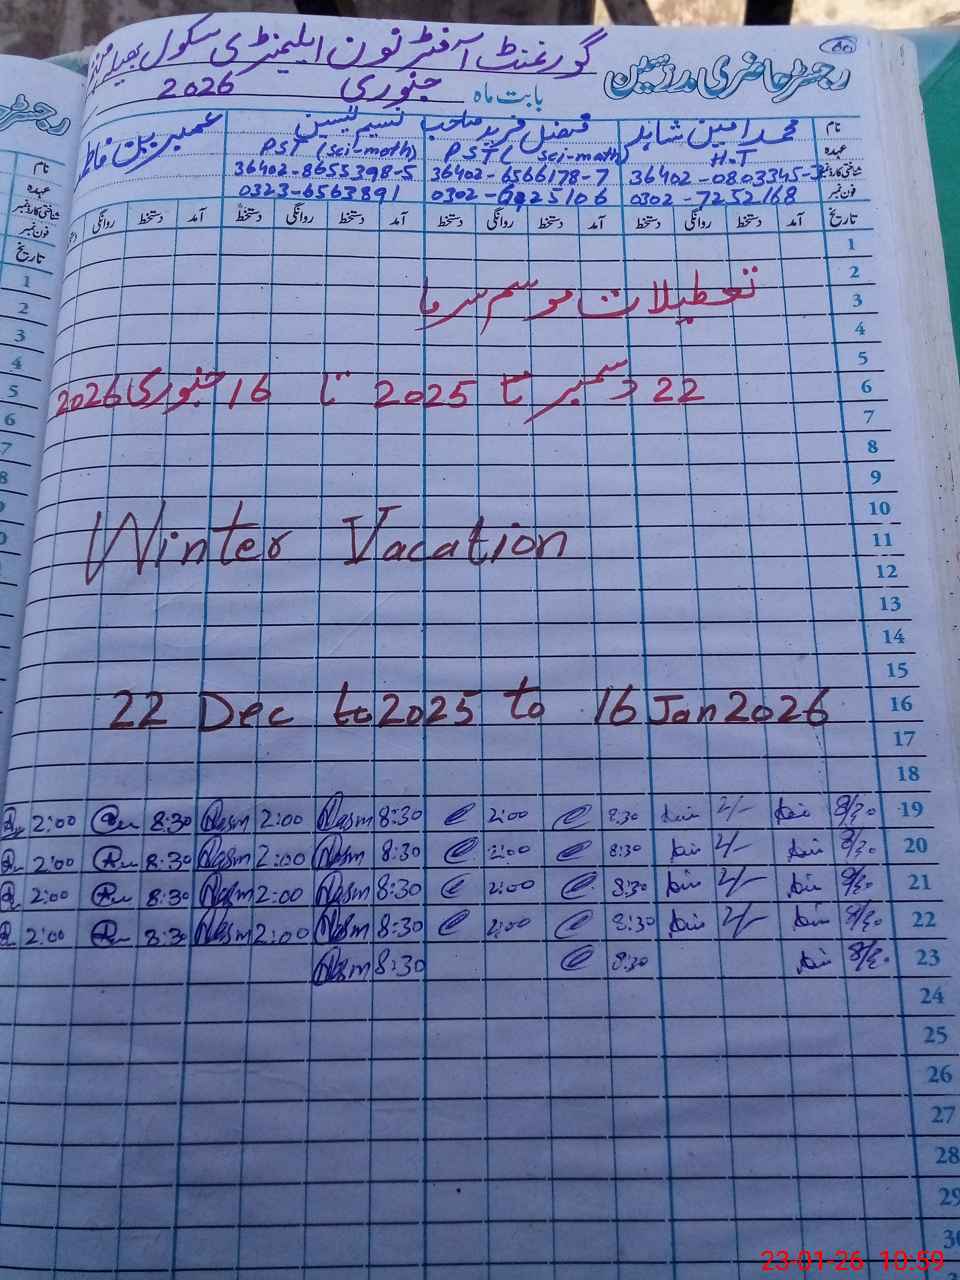 رجسٹر حاضری مدرسین گورنمنٹ آفٹر نون ایلیمنٹری سکول
بابت ماہ جنوری 2026
نام محمد امین شاہد فیضل فرید صاحب نسیم یٰسین
عہدہ H.T PST (sci-math) PST (sci-math)
شناختی کارڈ نمبر 36402-0803345-3 36402-6566178-7 36402-8655398-5
فون نمبر 0302-7252168 0323-6563891
تاریخ آمد دستخط روانگی دستخط آمد دستخط روانگی دستخط آمد دستخط روانگی دستخط آمد دستخط روانگی
1
2
تعطیلات موسم سرما
3
4
5
22 دسمبر 2025 تا 16 جنوری 2026
6
7
8
9
10
Winter Vacation
11
12
13
14
15
22 Dec to 2025 to 16 Jan 2026
16
17
18
2:00 8:30 2:00 8:30 2:00 8:30 2/- 8/30 19
2:00 8:30 2:00 8:30 2:00 8:30 2/- 8/30 20
2:00 8:30 2:00 8:30 2:00 8:30 2/- 8/30 21
2:00 8:30 2:00 8:30 2:00 8:30 2/- 8/30 22
8:30 8:30 8/30 23
24
25
26
27
28
29
30
23-01-26 10:59